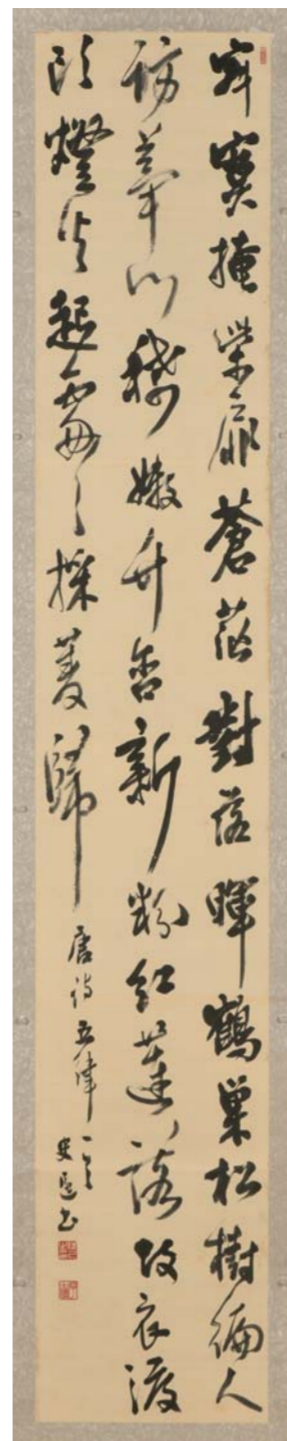 寂寞掩柴扉蒼茫對落暉鶴巢松樹徧人
訪蓽門稀嫩竹含新粉紅蓮落故衣渡
頭燈火起處々採菱歸
唐詩五律一首
書